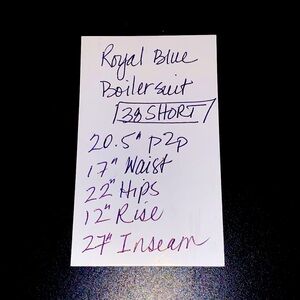 Royal Blue
Boilersuit
38 SHORT
20.5" p2p
17" Waist
22" Hips
12" Rise
27" Inseam